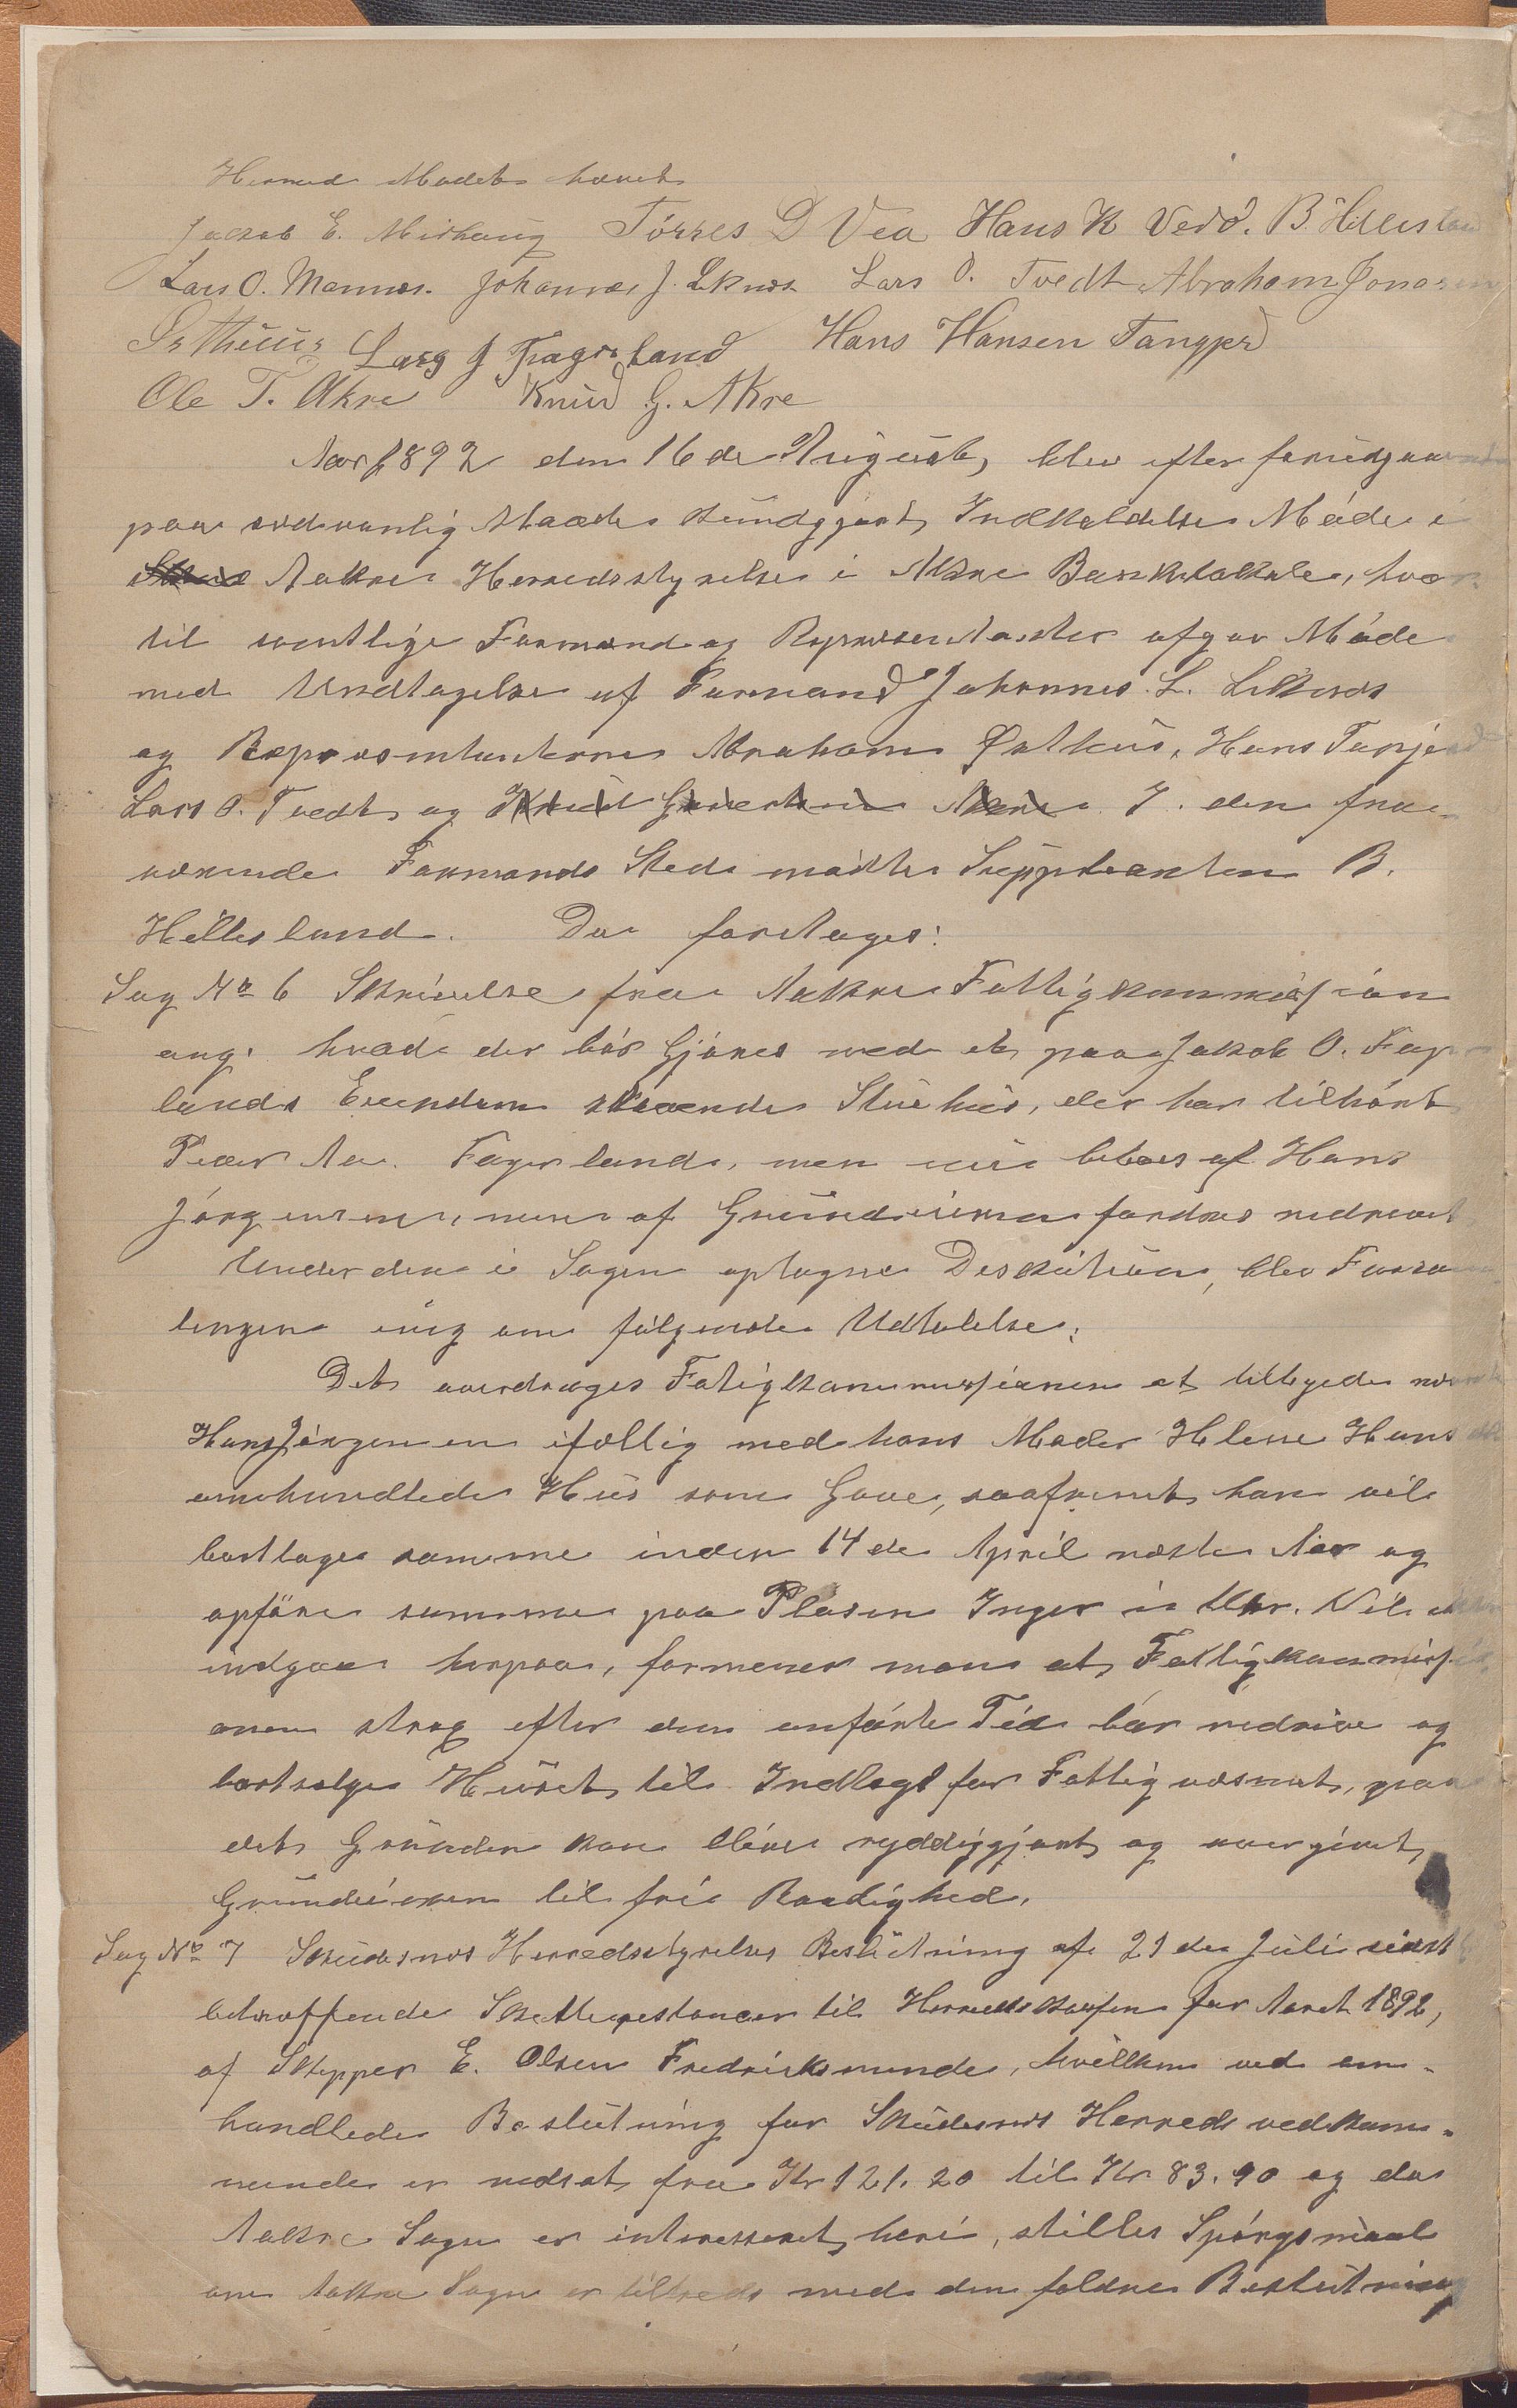 Hermed Mødet hævet
Jacob E. Mirhaug Tørres D Vea Hans K Vedø. B. Hilleslan
Lars O. Mannes. Johannes J. Eknes Lars O. Tvedt Abraham Jonasen
Lars J Fagerland Hans Hansen Tangjerd
Ole T. Akre Knud G. Akre
Aar 1892 den 16de August, blev efter forudgaaende
paa sædvanlig Maade kundgjort Indkaldelse Møde i
Aakre Herredsstyrelse i Akre Banklokale, hvor-
til samtlige Formænd og Repræsentanter afgav Møde
med Undtagelse af Formand Johannes L. Liknes
og Repræsentanterne Abraham Østhus, Hans Tanjerd
Lars O. Tvedt og Knud Gudmundsen Akre. I den fra-
værende Formands Sted mødte Suppleanten B.
Hilles land. Da foretages:
Sag No 6 Skrivelse fra Aakre Fattigkommissjon
ang. hvad der bør Gjøres med et paa Jakob O. Fager-
lands Eiendom staaende Stuehus, der har tilhørt
Peder Aa. Fagerland, men nu beboes af Hans
Jørgensen, men af Grundeieren fordres nedrevet
Under den i Sagen optagne Diskution, blev Forsam-
lingen enig om følgende Udtalelse:
Det overdrages Fatigkommissjonen at tilbyde nævnte
Hans Jørgensen ifællig med hans Moder Helene Hansd.
omhandlede Hus som Gave, saafremt han vil
borttage samme inden 14de April næste Aar og
opføre samme paa Pladsen Inger i Uhr. Vil
indgaa herpaa, formener man at Fattigkommissi-
onen strax efter den anførte Tid bør nedrive og
bortselge Huset til Indtægt for Fattigvæsenet, paa
det Grunden kan blive ryddiggjort og overgivet
Grundeieren til fri Raadighed.
Sag No 7 Skudesnes Herredsstyrelses Beslutning af 21de Juli sidst
betræffende Skatterestancer til Herredskassen for Aaret 1892,
af Skipper E. Olsen Fredriksminde, hvilken ved om-
handlede Beslutning for Skudesnes Herreds vedkom-
mende er nedsat fra Kr 121.20 til Kr 83.90 og da
Aakre Sogn er interesseret heri, stilles Spørgsmaal
om Aakre Sogn er tilfreds med den faldne Beslutning